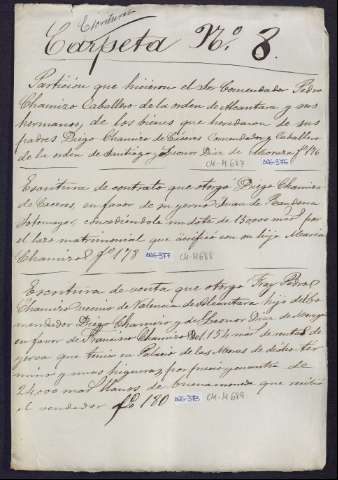 Escritura
Carpeta N.º 8.
Partición que hicieron el Sr Comendador Pedro
Chamizo Caballero de la orden de Alcantara y sus
hermanos, de los bienes que heredaron de sus
padres Diego Chamizo de Cáceres Comendador y Caballero
de la orden de Santiago y Leonor Diez de fº 176
CH-M687 006-376
Escritura de contrato que otorgo Diego Chamizo
de Caceres, en favor de su yerno Juan de
Sotomayor, concediéndole un dote de 13000 mas por
el lazo matrimonial que unificó con su hija María
Chamizo fº 178 006-377 CH-M688
Escritura de venta que otorgo Fray Pedro
Chamizo vecino de Valencia de Alcantara hijo del Co-
mendador Diego Chamizo y de Leonor Diez de
en favor de Francisco Chamizo del 154 mas de renta de
yerva que tenia en Palacio de las Monas de dicho ter
mino y unas higueras por precio y cuantia de
24,000 mas llanos de buena moneda que recibió
el vendedor fº 180 006-378 CH-M689